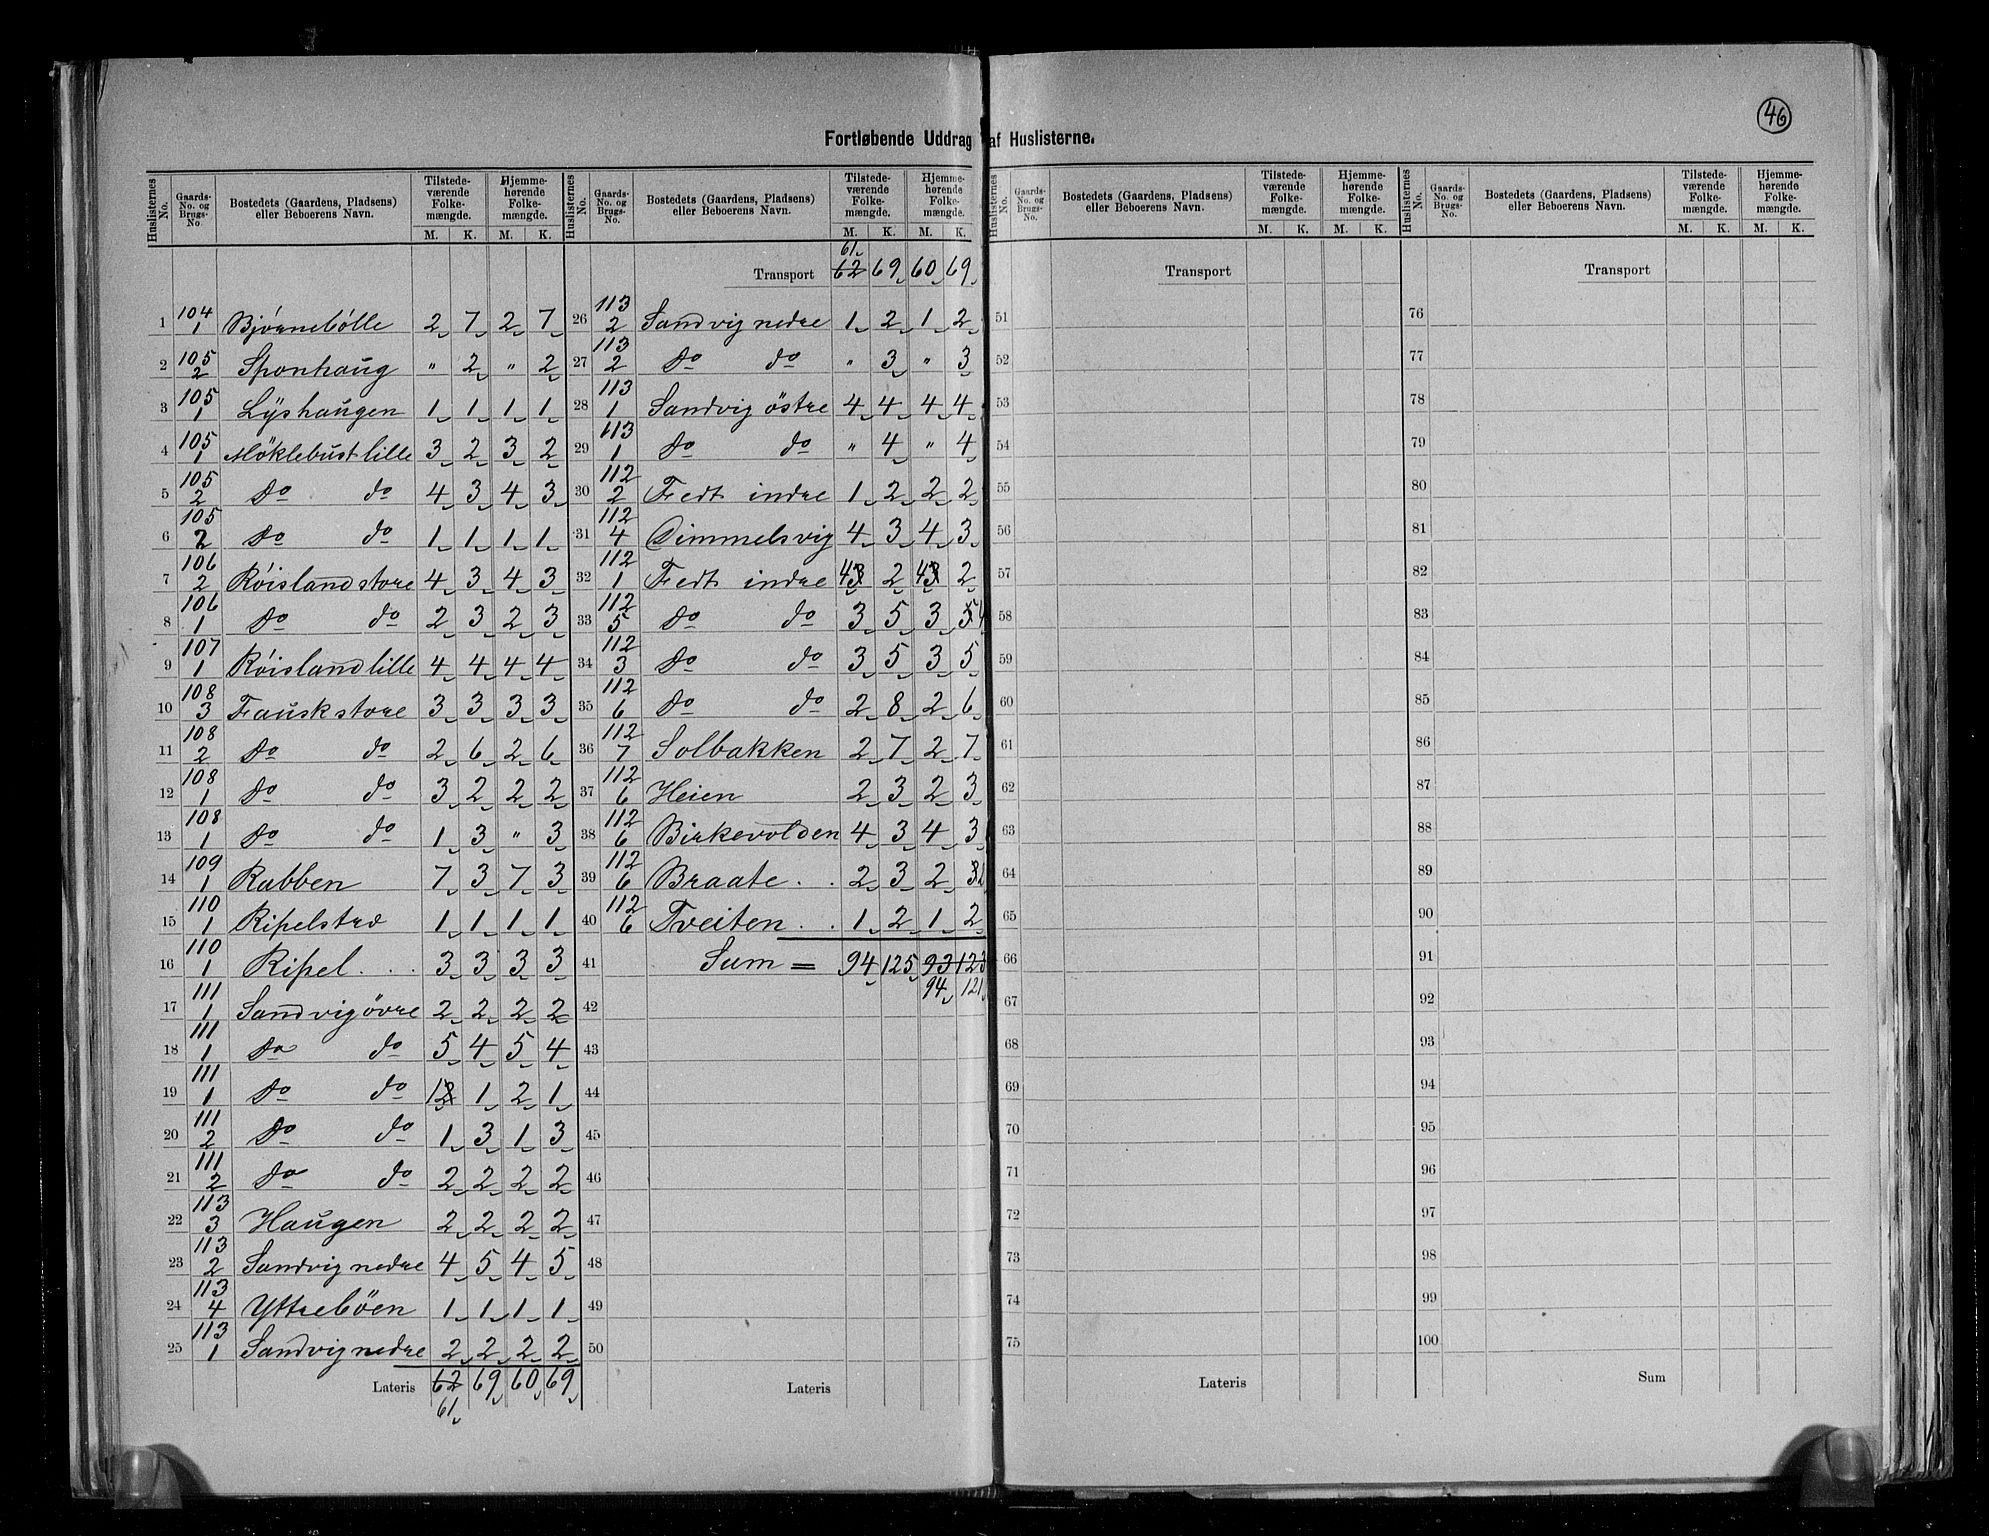 46
Fortløbende Uddrag af Huslisterne.
Huslisternes No. Gaards-No. og Brugs-No. Bostedets (Gaardens, Pladsens) eller Beboerens Navn. Tilstedeværende Folkemængde. M. K. Hjemmehørende Folkemængde. M. K.
1 104/1 Bjørnebólle 2 7 2 7
2 105/2 Sponhaug " 2 " 2
3 105/1 Lyshaugen 1 1 1 1
4 105/1 Møklebust lille 3 2 3 2
5 105/2 Do do 4 3 4 3
6 105/2 Do do 1 1 1 1
7 106/2 Róisland store 4 3 4 3
8 106/1 Do do 2 3 2 3
9 107/1 Róisland lille 4 4 4 4
10 108/3 Fausk store 3 3 3 3
11 108/2 Do do 2 6 2 6
12 108/1 Do do 3 2 2 2
13 108/1 Do do 1 3 " 3
14 109/1 Rabben 7 3 7 3
15 110/1 Ripelstræ 1 1 1 1
16 110/1 Ripel . . . 3 3 3 3
17 111/1 Sandvig óvre 2 2 2 2
18 111/1 Do do 5 4 5 4
19 111/1 Do do 1 2 1 2 1
20 111/2 Do do 1 3 1 3
21 111/2 Do do 2 2 2 2
22 113/3 Haugen 2 2 2 2
23 113/2 Sandvig nedre 4 5 4 5
24 113/4 Yttrebóen 1 1 1 1
25 113/1 Sandvig nedre 2 2 2 2
Lateris 62 69 60 69
61
Huslisternes No. Gaards-No. og Brugs-No. Bostedets (Gaardens, Pladsens) eller Beboerens Navn. Tilstedeværende Folkemængde. M. K. Hjemmehørende Folkemængde. M. K.
61
Transport 62 69 60 69
26 113/2 Sandvig nedre 1 2 1 2
27 113/2 Do do " 3 " 3
28 113/1 Sandvig östre 4 4 4 4
29 113/1 Do do " 4 " 4
30 112/2 Fedt indre 1 2 2 2
31 112/4 Dimmelsvig 4 3 4 3
32 112/1 Fedt indre 4 3 2 4 3 2
33 112/5 Do do 3 5 3 5 4
34 112/3 Do do 3 5 3 5
35 112/6 Do do 2 8 2 6
36 112/7 Solbakken 2 7 2 7
37 112/6 Heien 2 3 2 3
38 112/6 Birkevolden 4 3 4 3
39 112/6 Braate . . 2 3 2 3
40 112/6 Tveiten . . 1 2 1 2
41 Sum = 94 125 93 123
94 121
42
43
44
45
46
47
48
49
50
Lateris
Huslisternes No. Gaards-No. og Brugs-No. Bostedets (Gaardens, Pladsens) eller Beboerens Navn. Tilstedeværende Folkemængde. M. K. Hjemmehørende Folkemængde. M. K.
Transport
51
52
53
54
55
56
57
58
59
60
61
62
63
64
65
66
67
68
69
70
71
72
73
74
75
Lateris
Huslisternes No. Gaards-No. og Brugs-No. Bostedets (Gaardens, Pladsens) eller Beboerens Navn. Tilstedeværende Folkemængde. M. K. Hjemmehørende Folkemængde. M. K.
Transport
76
77
78
79
80
81
82
83
84
85
86
87
88
89
90
91
92
93
94
95
96
97
98
99
100
Sum